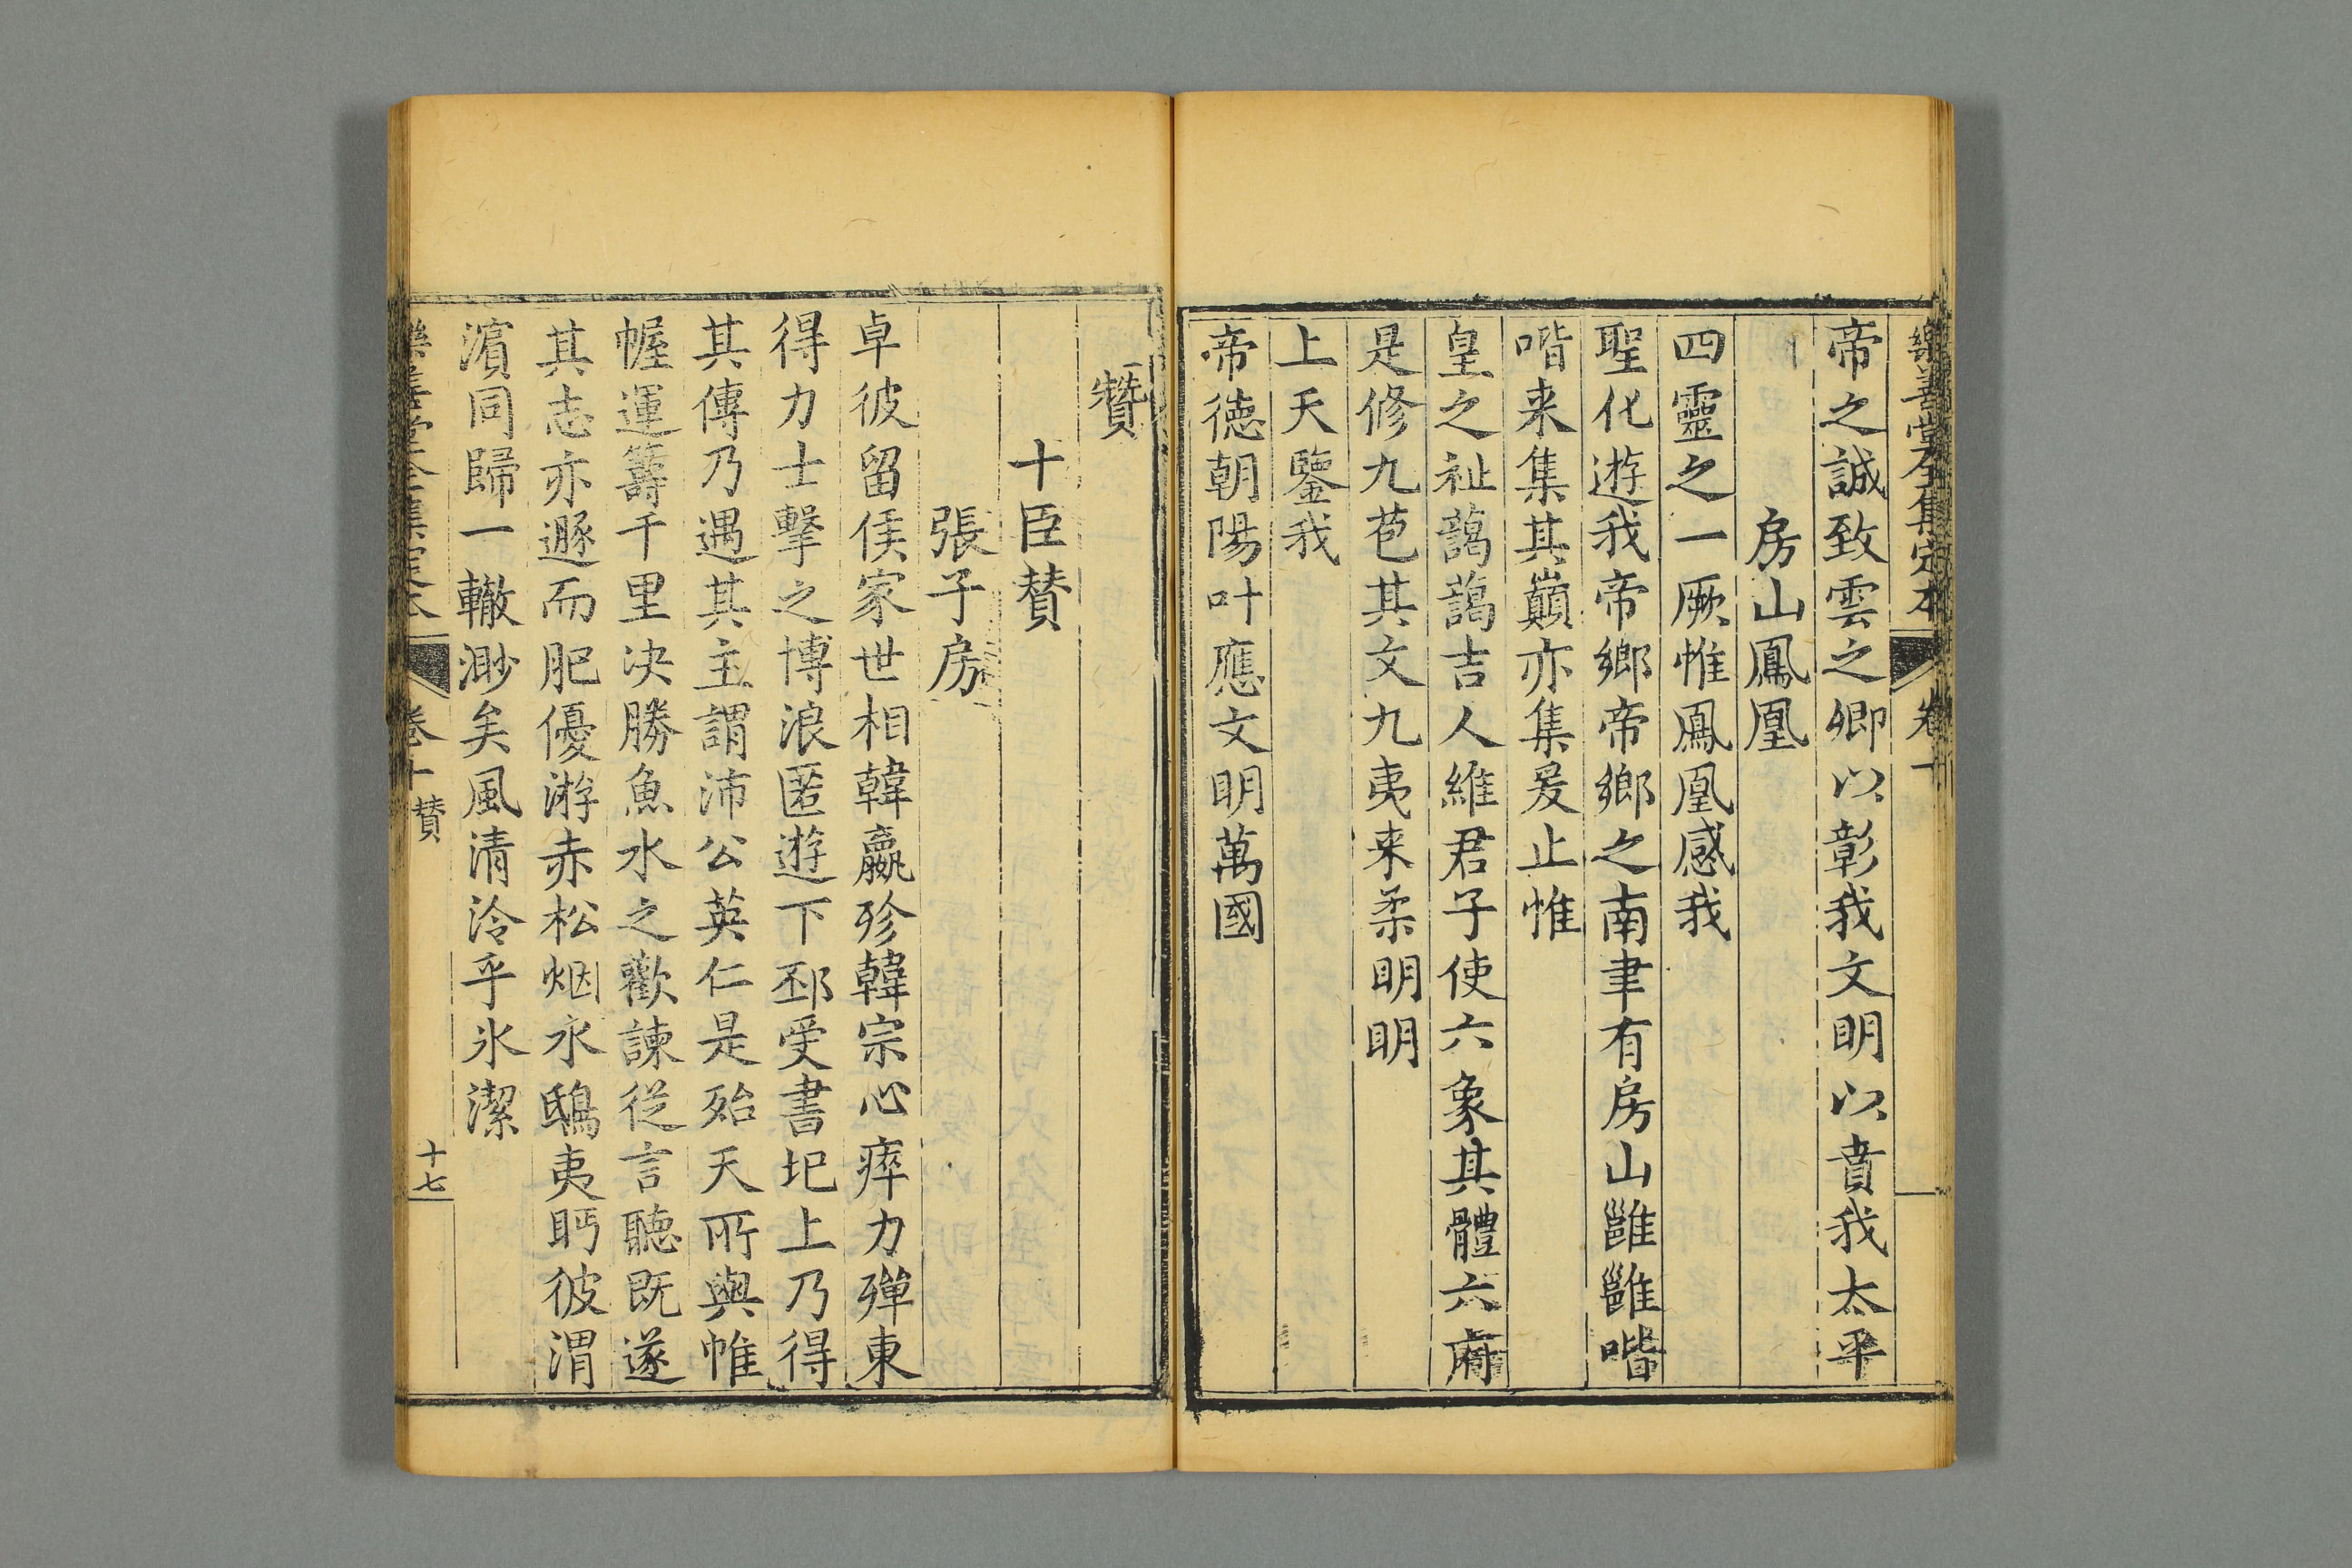 樂善堂全集定本
卷十
帝之誠致雲之卿以彰我文明以賁我太平
房山鳳凰
四靈之一厥惟鳳凰感我
聖化遊我帝鄉帝鄉之南聿有房山雝雝喈
喈来集其巔亦集爰止惟
皇之祉藹藹吉人維君子使六象其體六府
是修九苞其文九夷来柔明明
上天鑒我
帝徳朝陽叶應文明萬國
贊
十臣賛
張子房
卓彼留侯家世相韓嬴殄韓宗心瘁力殫東
得力士擊之博浪匿遊下邳受書圯上乃得
其傳乃遇其主謂沛公英仁是殆天所與帷
幄運籌千里决勝魚水之歡諫從言聽既遂
其志亦遯而肥優游赤松烟水鴟夷眄彼渭
濵同歸一轍渺矣風清泠乎氷潔
樂善堂全集定本
卷十
賛
十七